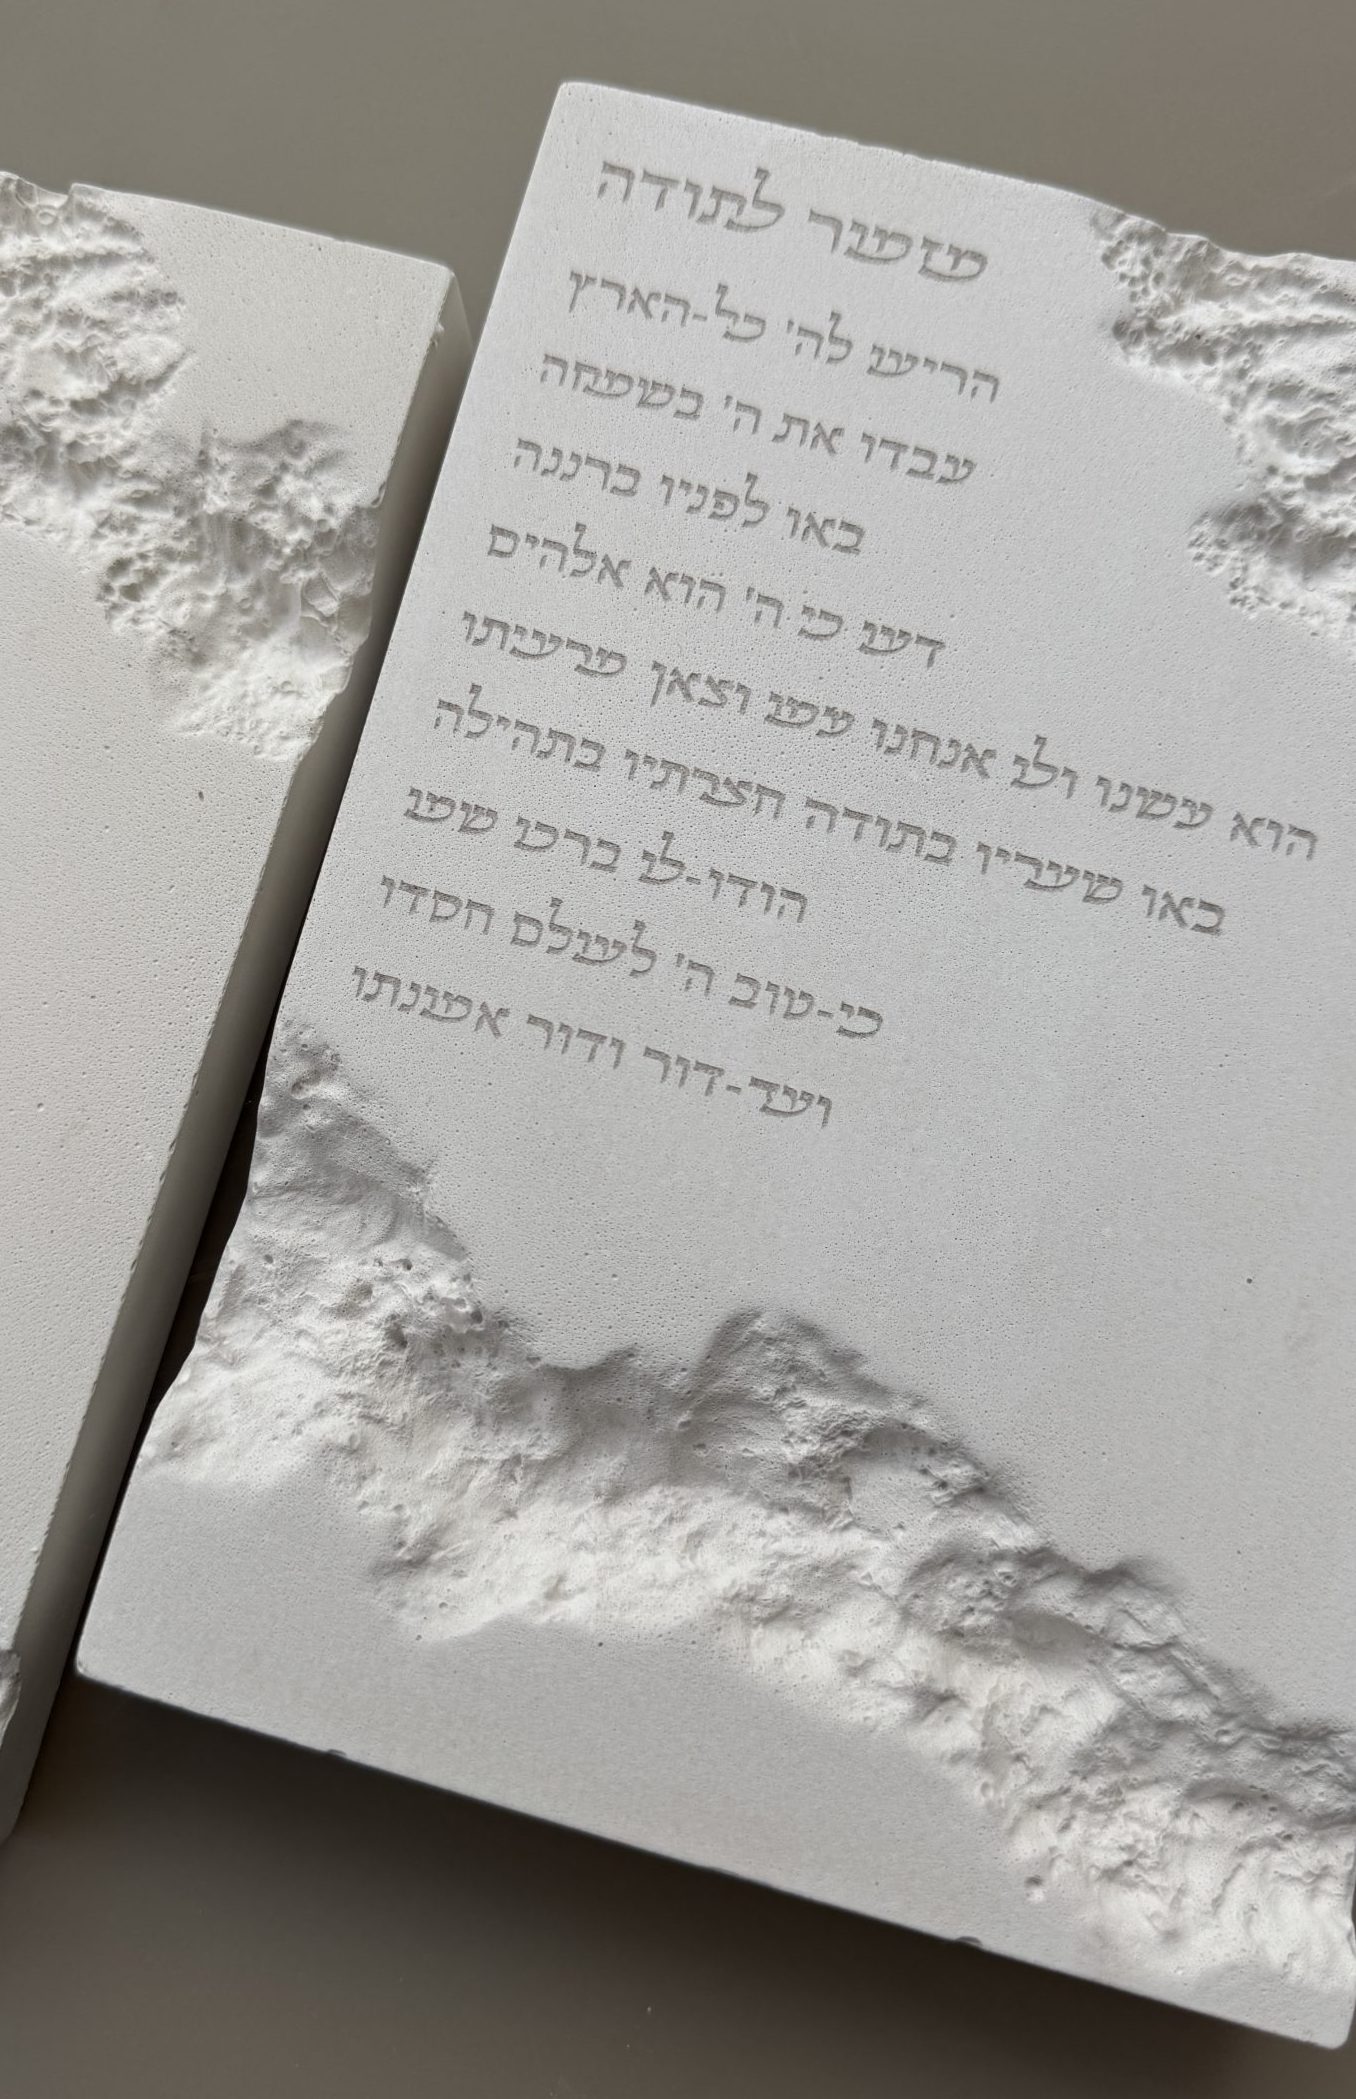 מזמור לתודה
הריעו לה' כל-הארץ
עבדו את ה' בשמחה
באו לפניו ברננה
דעו כי ה' הוא אלהים
הוא עשנו ולו אנחנו עמו וצאן מרעיתו
באו שעריו בתודה חצרתיו בתהילה
הודו-לו ברכו שמו
כי-טוב ה' לעולם חסדו
ועד-דור ודור אמונתו